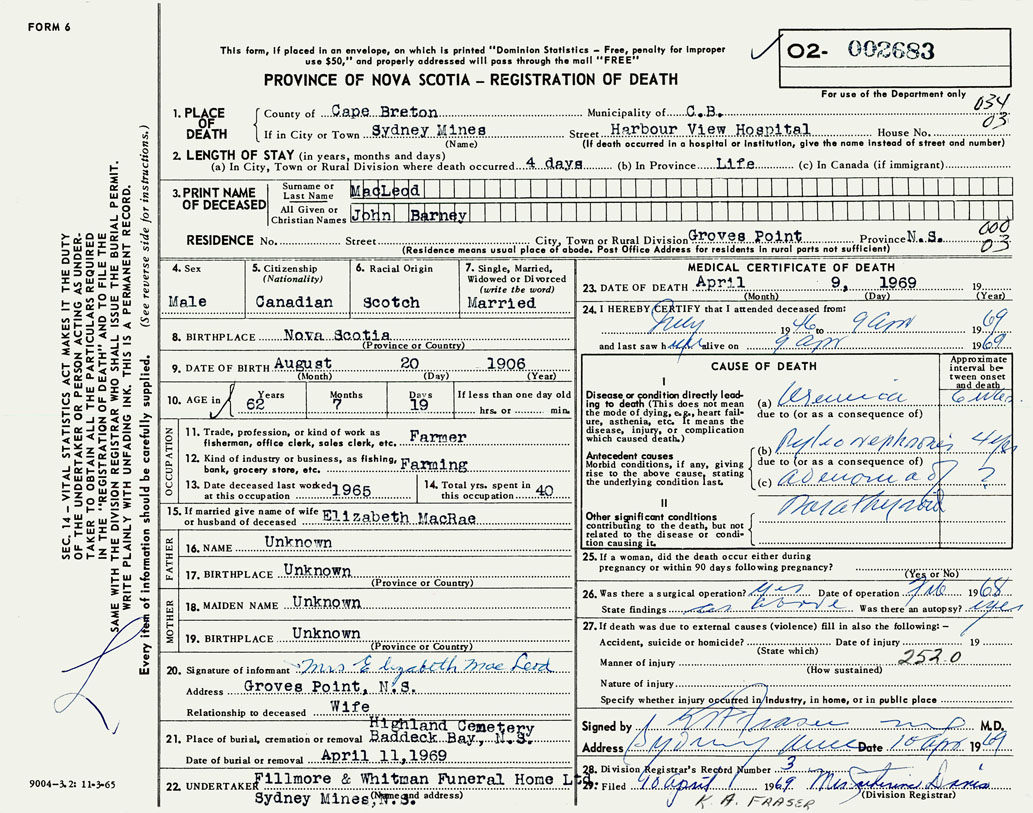 FORM 6
This form, if placed in an envelope, on which is printed "Dominion Statistics – Free, penalty for improper
use $50," and properly addressed will pass through the mail "FREE"
O2- 002683
PROVINCE OF NOVA SCOTIA – REGISTRATION OF DEATH
For use of the Department only
034
03
1. PLACE OF DEATH
County of Cape Breton Municipality of C.B.
If in City or Town Sydney Mines Street Harbour View Hospital House No.
(Name) (If death occurred in a hospital or institution, give the name instead of street and number)
2. LENGTH OF STAY (in years, months and days)
(a) In City, Town or Rural Division where death occurred 4 days (b) In Province Life (c) In Canada (if immigrant)
3. PRINT NAME OF DECEASED
Surname or Last Name MacLeod
All Given or Christian Names John Barney
000
03
RESIDENCE No. Street City, Town or Rural Division Groves Point Province N.S.
(Residence means usual place of abode. Post Office Address for residents in rural parts not sufficient)
4. Sex
Male
5. Citizenship
(Nationality)
Canadian
6. Racial Origin
Scotch
7. Single, Married,
Widowed or Divorced
(write the word)
Married
8. BIRTHPLACE Nova Scotia
(Province or Country)
9. DATE OF BIRTH August 20 1906
(Month) (Day) (Year)
10. AGE in Years 62 Months 7 Days 19 If less than one day old
hrs. or min.
OCCUPATION
11. Trade, profession, or kind of work as
fisherman, office clerk, sales clerk, etc. Farmer
12. Kind of industry or business, as fishing,
bank, grocery store, etc. Farming
13. Date deceased last worked
at this occupation 1965
14. Total yrs. spent in
this occupation 40
15. If married give name of wife
or husband of deceased Elizabeth MacRae
FATHER
16. NAME Unknown
17. BIRTHPLACE Unknown
(Province or Country)
MOTHER
18. MAIDEN NAME Unknown
19. BIRTHPLACE Unknown
(Province or Country)
20. Signature of informant Mrs Elizabeth Mac Leod
Address Groves Point, N.S.
Relationship to deceased Wife
Highland Cemetery
21. Place of burial, cremation or removal Baddeck Bay, N.S.
Date of burial or removal April 11,1969
22. UNDERTAKER Fillmore & Whitman Funeral Home Ltd.
Sydney Mines, N.S.
(Name and address)
MEDICAL CERTIFICATE OF DEATH
23. DATE OF DEATH April 9, 1969 19
(Month) (Day) (Year)
24. I HEREBY CERTIFY that I attended deceased from:
July 1946 to 9 Apr 1969
and last saw h alive on 9 Apr 1969
CAUSE OF DEATH
Approximate
interval be-
tween onset
and death
I
Disease or condition directly lead-
ing to death (This does not mean
the mode of dying, e.g., heart fail-
ure, asthenia, etc. It means the
disease, injury, or complication
which caused death.)
(a) Uremia 6
due to (or as a consequence of)
(b) Pyelonephrosis 4 yrs
Antecedent causes
Morbid conditions, if any, giving
rise to the above cause, stating
the underlying condition last.
due to (or as a consequence of)
(c) adenoma of ?
Parathyroid
II
Other significant conditions
contributing to the death, but not
related to the disease or condi-
tion causing it.
25. If a woman, did the death occur either during
pregnancy or within 90 days following pregnancy?
(Yes or No)
26. Was there a surgical operation? yes Date of operation Feb 1968
State findings as above Was there an autopsy? yes
27. If death was due to external causes (violence) fill in also the following:–
Accident, suicide or homicide? Date of injury 19
(State which)
Manner of injury 252.0
(How sustained)
Nature of injury
Specify whether injury occurred in industry, in home, or in public place
Signed by K A Fraser M.D.
Address Sydney Mines Date 10 Apr 1969
28. Division Registrar's Record Number 3
29. Filed 10 April 1969 Mrs Davis
(Division Registrar)
K. A. FRASER
SEC. 14 – VITAL STATISTICS ACT MAKES IT THE DUTY
OF THE UNDERTAKER OR PERSON ACTING AS UNDER-
TAKER TO OBTAIN ALL THE PARTICULARS REQUIRED
IN THE "REGISTRATION OF DEATH" AND TO FILE THE
SAME WITH THE DIVISION REGISTRAR WHO SHALL ISSUE THE BURIAL PERMIT.
WRITE PLAINLY WITH UNFADING INK. THIS IS A PERMANENT RECORD.
Every item of information should be carefully supplied. (See reverse side for instructions.)
9004-3.2: 11-3-65